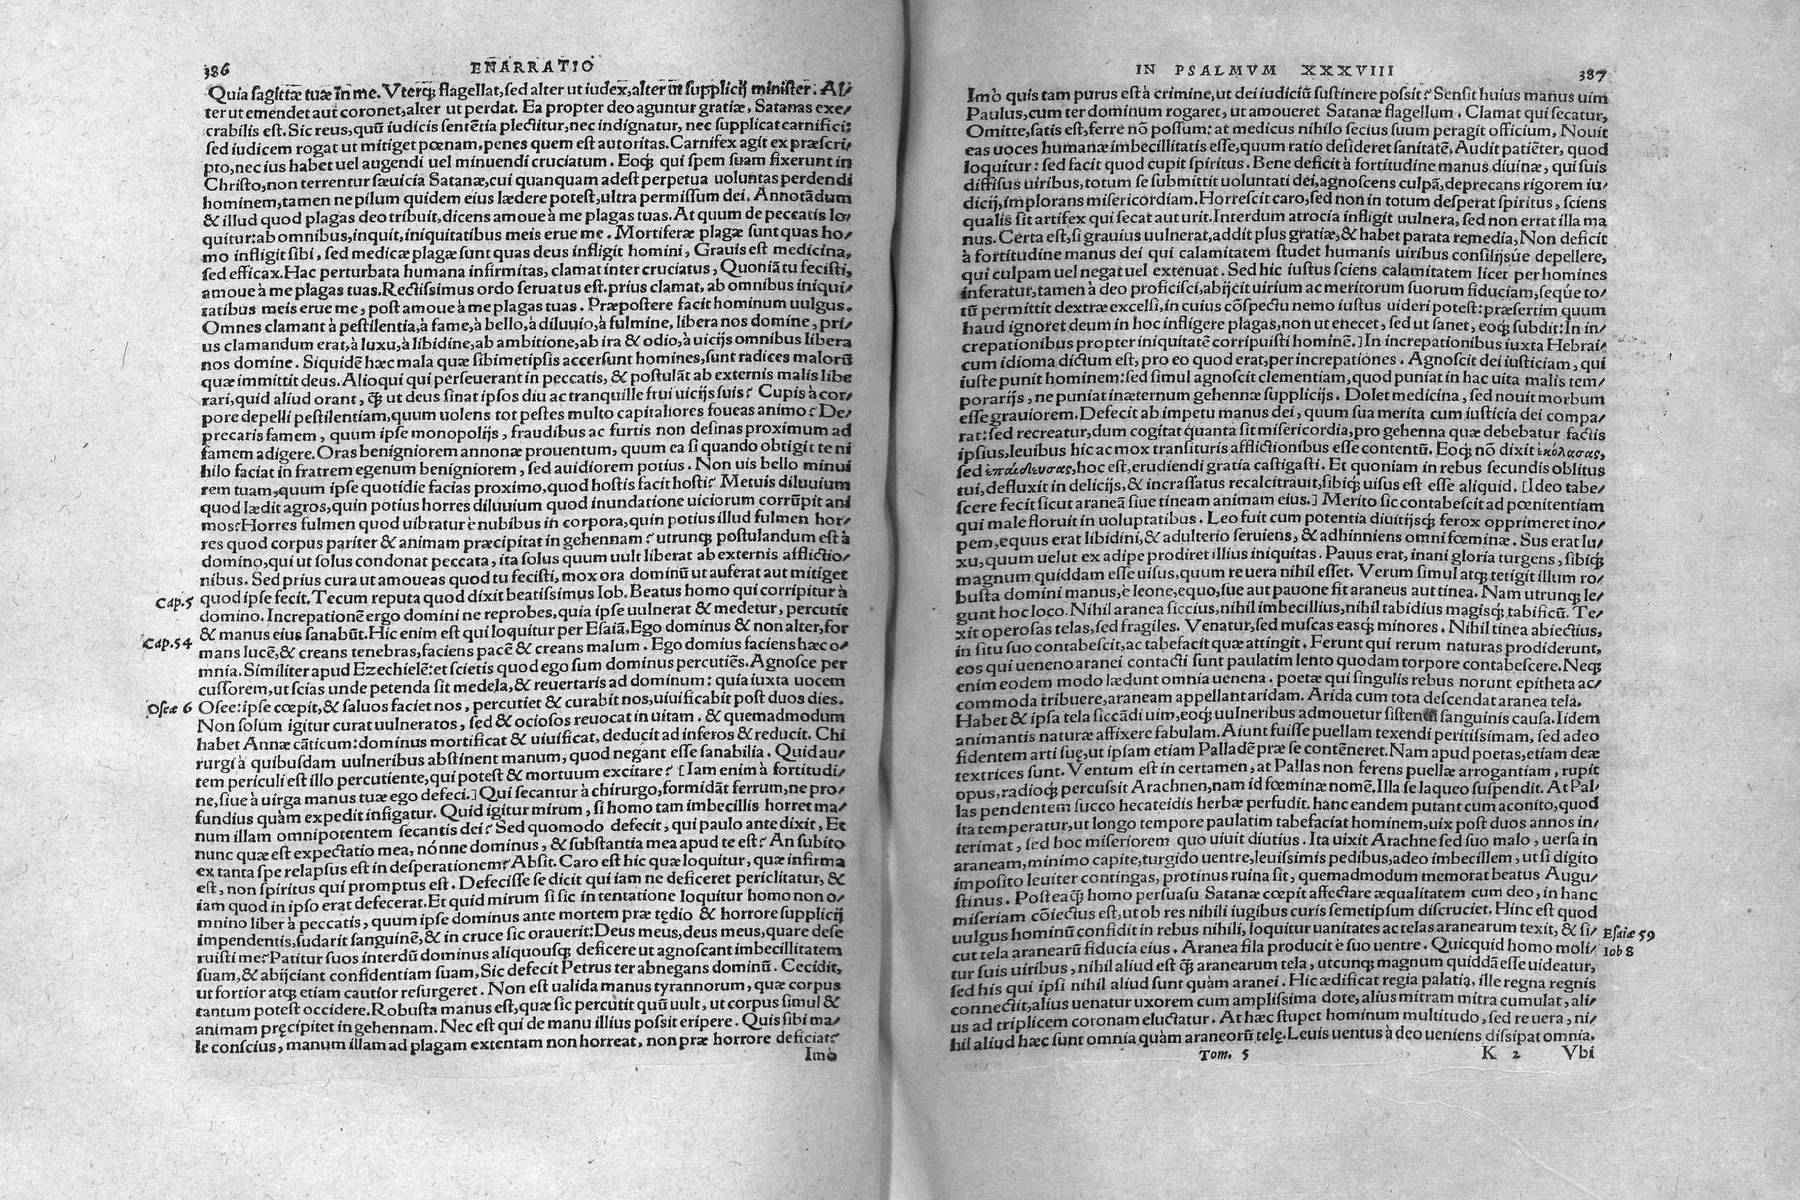 386 ENARRATIO
Quia sagittæ tuæ in me. Vterq; flagellat, sed alter ut iudex, alter ut supplicij minister. Al/
ter ut emendet aut coronet, alter ut perdat. Ea propter deo aguntur gratiæ, Satanas exe/
crabilis est. Sic reus, quũ iudicis sentẽtia plectitur, nec indignatur, nec supplicat carnifici:
sed iudicem rogat ut mitiget pœnam, penes quem est autoritas. Carnifex agit ex præscri/
pto, nec ius habet uel augendi uel minuendi cruciatum. Eoq; qui spem suam fixerunt in
Christo, non terrentur sæuicia Satanæ, cui quanquam adest perpetua uoluntas perdendi
hominem, tamen ne pilum quidem eius lædere potest, ultra permissum dei. Annotãdum
& illud quod plagas deo tribuit, dicens amoue à me plagas tuas. At quum de peccatis lo/
quitur: ab omnibus, inquit, iniquitatibus meis erue me. Mortiferæ plagæ sunt quas ho/
mo infligit sibi, sed medicæ plagæ sunt quas deus infligit homini, Grauis est medicina,
sed efficax. Hac perturbata humana infirmitas, clamat inter cruciatus, Quoniã tu fecisti,
amoue à me plagas tuas. Rectissimus ordo seruatus est. prius clamat, ab omnibus iniqui/
tatibus meis erue me, post amoue à me plagas tuas. Præpostere facit hominum uulgus.
Omnes clamant à pestilentia, à fame, à bello, à diluuio, à fulmine, libera nos domine, pri/
us clamandum erat, à luxu, à libidine, ab ambitione, ab ira & odio, à uicijs omnibus libera
nos domine. Siquidẽ hæc mala quæ sibimetipsis accersunt homines, sunt radices malorũ
quæ immittit deus. Alioqui qui perseuerant in peccatis, & postulãt ab externis malis libe
rari, quid aliud orant, q̃ ut deus sinat ipsos diu ac tranquille frui uicijs suis? Cupis à cor/
pore depelli pestilentiam, quum uolens tot pestes multo capitaliores foueas animo? De/
precaris famem, quum ipse monopolijs, fraudibus ac furtis non desinas proximum ad
famem adigere. Oras benigniorem annonæ prouentum, quum ea si quando obtigit te ni
hilo faciat in fratrem egenum benigniorem, sed auidiorem potius. Non uis bello minui
rem tuam, quum ipse quotidie facias proximo, quod hostis facit hosti? Metuis diluuium
quod lædit agros, quin potius horres diluuium quod inundatione uiciorum corrũpit ani
mos? Horres fulmen quod uibratur è nubibus in corpora, quin potius illud fulmen hor/
res quod corpus pariter & animam præcipitat in gehennam? utrunq; postulandum est à
domino, qui ut solus condonat peccata, ita solus quum uult liberat ab externis afflictio/
nibus. Sed prius cura ut amoueas quod tu fecisti, mox ora dominũ ut auferat aut mitiget
Cap. 5 quod ipse fecit. Tecum reputa quod dixit beatissimus Iob. Beatus homo qui corripitur à
domino. Increpationẽ ergo domini ne reprobes, quia ipse uulnerat & medetur, percutit
& manus eius sanabũt. Hic enim est qui loquitur per Esaiã, Ego dominus & non alter, for
Cap. 54 mans lucẽ, & creans tenebras, faciens pacẽ & creans malum. Ego domius faciens hæc o/
mnia. Similiter apud Ezechielẽ: et scietis quod ego sum dominus percutiẽs. Agnosce per
cussorem, ut scias unde petenda sit medela, & reuertaris ad dominum: quia iuxta uocem
Oseæ 6 Osee: ipse cœpit, & saluos faciet nos, percutiet & curabit nos, uiuificabit post duos dies.
Non solum igitur curat uulneratos, sed & ociosos reuocat in uitam. & quemadmodum
habet Annæ cãticum: dominus mortificat & uiuificat, deducit ad inferos & reducit. Chi
rurgi à quibusdam uulneribus abstinent manum, quod negant esse sanabilia. Quid au/
tem periculi est illo percutiente, qui potest & mortuum excitare? [Iam enim à fortitudi/
ne, siue à uirga manus tuæ ego defeci.] Qui secantur à chirurgo, formidãt ferrum, ne pro/
fundius quàm expedit infigatur. Quid igitur mirum, si homo tam imbecillis horret ma/
num illam omnipotentem secantis dei? Sed quomodo defecit, qui paulo ante dixit, Et
nunc quæ est expectatio mea, nónne dominus, & substantia mea apud te est? An subito
ex tanta spe relapsus est in desperationem? Absit. Caro est hic quæ loquitur, quæ infirma
est, non spiritus qui promptus est. Defecisse se dicit qui iam ne deficeret periclitatur, &
iam quod in ipso erat defecerat. Et quid mirum si sic in tentatione loquitur homo non o/
mnino liber à peccatis, quum ipse dominus ante mortem præ tędio & horrore supplicij
impendentis, sudarit sanguinẽ, & in cruce sic orauerit: Deus meus, deus meus, quare dese
ruisti me? Patitur suos interdũ dominus aliquousq; deficere ut agnoscant imbecillitatem
suam, & abijciant confidentiam suam, Sic defecit Petrus ter abnegans dominũ. Cecidit,
ut fortior atq; etiam cautior resurgeret. Non est ualida manus tyrannorum, quæ corpus
tantum potest occidere. Robusta manus est, quæ sic percutit quũ uult, ut corpus simul &
animam pręcipitet in gehennam. Nec est qui de manu illius possit eripere. Quis sibi ma/
le conscius, manum illam ad plagam extentam non horreat, non præ horrore deficiat?
Imò
IN PSALMVM XXXVIII 387
Imò quis tam purus est à crimine, ut dei iudiciũ sustinere possit? Sensit huius manus uim
Paulus, cum ter dominum rogaret, ut amoueret Satanæ flagellum. Clamat qui secatur,
Omitte, satis est, ferre nõ possum: at medicus nihilo secius suum peragit officium, Nouit
eas uoces humanæ imbecillitatis esse, quum ratio desideret sanitatẽ. Audit patiẽter, quod
loquitur: sed facit quod cupit spiritus. Bene deficit à fortitudine manus diuinæ, qui suis
diffisus uiribus, totum se submittit uoluntati dei, agnoscens culpã, deprecans rigorem iu/
dicij, implorans misericordiam. Horrescit caro, sed non in totum desperat spiritus, sciens
qualis sit artifex qui secat aut urit. Interdum atrocia infligit uulnera, sed non errat illa ma
nus. Certa est, si grauius uulnerat, addit plus gratiæ, & habet parata remedia, Non deficit
à fortitudine manus dei qui calamitatem studet humanis uiribus consilijsúe depellere,
qui culpam uel negat uel extenuat. Sed hic iustus sciens calamitatem licet per homines
inferatur, tamen à deo proficisci, abijcit uirium ac meritorum suorum fiduciam, seq́ue to/
tũ permittit dextræ excelsi, in cuius cõspectu nemo iustus uideri potest: præsertim quum
haud ignoret deum in hoc infligere plagas, non ut enecet, sed ut sanet, eoq; subdit: In in/
crepationibus propter iniquitatẽ corripuisti hominẽ.] In increpationibus iuxta Hebrai/
cum idioma dictum est, pro eo quod erat, per increpationes. Agnoscit dei iusticiam, qui
iuste punit hominem: sed simul agnoscit clementiam, quod puniat in hac uita malis tem/
porarijs, ne puniat inæternum gehennæ supplicijs. Dolet medicina, sed nouit morbum
esse grauiorem. Defecit ab impetu manus dei, quum sua merita cum iusticia dei compa/
rat: sed recreatur, dum cogitat quanta sit misericordia, pro gehenna quæ debebatur factis
ipsius, leuibus hic ac mox transituris afflictionibus esse contentũ. Eoq; nõ dixit ἐκόλασας,
sed ἐπαίδευσας, hoc est, erudiendi gratia castigasti. Et quoniam in rebus secundis oblitus
tui, defluxit in delicijs, & incrassatus recalcitrauit, sibiq; uisus est esse aliquid. [Ideo tabe/
scere fecit sicut araneã siue tineam animam eius.] Merito sic contabescit ad pœnitentiam
qui male floruit in uoluptatibus. Leo fuit cum potentia diuitijsq; ferox opprimeret ino/
pem, equus erat libidini, & adulterio seruiens, & adhinniens omni fœminæ. Sus erat lu/
xu, quum uelut ex adipe prodiret illius iniquitas. Pauus erat, inani gloria turgens, sibiq;
magnum quiddam esse uisus, quum re uera nihil esset. Verum simul atq; tetigit illum ro/
busta domini manus, è leone, equo, sue aut pauone fit araneus aut tinea. Nam utrunq; le/
gunt hoc loco. Nihil aranea siccius, nihil imbecillius, nihil tabidius magisq; tabificũ. Te/
xit operosas telas, sed fragiles. Venatur, sed muscas easq; minores. Nihil tinea abiectius,
in situ suo contabescit, ac tabefacit quæ attingit. Ferunt qui rerum naturas prodiderunt,
eos qui ueneno aranei contacti sunt paulatim lento quodam torpore contabescere. Neq;
enim eodem modo lædunt omnia uenena. poetæ qui singulis rebus norunt epitheta ac/
commoda tribuere, araneam appellant aridam. Arida cum tota descendat aranea tela.
Habet & ipsa tela siccãdi uim, eoq; uulneribus admouetur sistendi sanguinis causa. Iidem
animantis naturæ affixere fabulam. Aiunt fuisse puellam texendi peritissimam, sed adeo
fidentem arti suę, ut ipsam etiam Palladẽ præ se contẽneret. Nam apud poetas, etiam deæ
textrices sunt. Ventum est in certamen, at Pallas non ferens puellæ arrogantiam, rupit
opus, radioq; percussit Arachnen, nam id fœminæ nomẽ. Illa se laqueo suspendit. At Pal/
las pendentem succo hecateidis herbæ perfudit. hanc eandem putant cum aconito, quod
ita temperatur, ut longo tempore paulatim tabefaciat hominem, uix post duos annos in/
terimat, sed hoc miseriorem quo uiuit diutius. Ita uixit Arachne sed suo malo, uersa in
araneam, minimo capite, turgido uentre, leuissimis pedibus, adeo imbecillem, ut si digito
imposito leuiter contingas, protinus ruina sit, quemadmodum memorat beatus Augu/
stinus. Posteaq̃ homo persuasu Satanæ cœpit affectare æqualitatem cum deo, in hanc
miseriam cõiectus est, ut ob res nihili iugibus curis semetipsum discruciet. Hinc est quod
uulgus hominũ confidit in rebus nihili, loquitur uanitates ac telas aranearum texit, & si/ Esaiæ 59
cut tela aranearũ fiducia eius. Aranea fila producit è suo uentre. Quicquid homo moli/ Iob 8
tur suis uiribus, nihil aliud est q̃ aranearum tela, utcunq; magnum quiddã esse uideatur,
sed his qui ipsi nihil aliud sunt quàm aranei. Hic ædificat regia palatia, ille regna regnis
connectit, alius uenatur uxorem cum amplissima dote, alius mitram mitra cumulat, ali/
us ad triplicem coronam eluctatur. At hæc stupet hominum multitudo, sed re uera, ni/
hil aliud hæc sunt omnia quàm araneorũ telę. Leuis uentus à deo ueniens dissipat omnia.
Tom. 5 K 2 Vbi